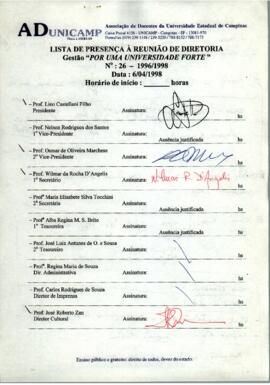 ADUNICAMP
Associação de Docentes da Universidade Estadual de Campinas
LISTA DE PRESENÇA À REUNIÃO DE DIRETORIA
Gestão "POR UMA UNIVERSIDADE FORTE"
Nº : 26 - 1996/1998
Data : 6/04/1998
Horário de início : ______ horas
Prof. Lino Castellani Filho Assinatura:
Presidente hs
Prof. Nelson Rodrigues dos Santos Assinatura:
1º Vice-Presidente Ausência justificada hs
Prof. Osmar de Oliveira Marchese Assinatura:
2º Vice-Presidente hs
Prof. Wilmar da Rocha D'Angelis Assinatura: Wilmar R. D'Angelis
1º Secretário hs
Profª Maria Elizabete Silva Tocchini Assinatura:
2ª Secretária Ausência justificada hs
Profª Alba Regina M. S. Brito Assinatura:
1ª Tesoureira Ausência justificada hs
Prof. José Luiz Antunes de O. e Souza Assinatura:
2º Tesoureiro hs
Profª. Regina Maria de Souza Assinatura:
Dir. Administrativa hs
Prof. Carlos Rodrigues de Souza Assinatura:
Diretor de Imprensa hs
Prof. José Roberto Zan Assinatura:
Diretor Cultural hs
Ensino público e gratuito: direito de todos, dever do estado.